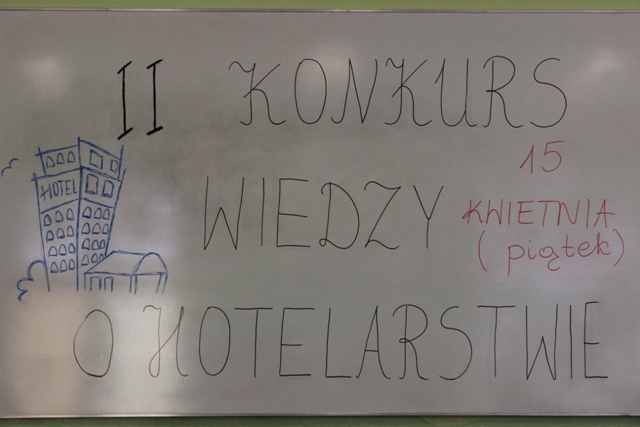 II KONKURS
HOTEL
WIEDZY
15
KWIETNIA
(piątek)
O HOTELARSTWIE